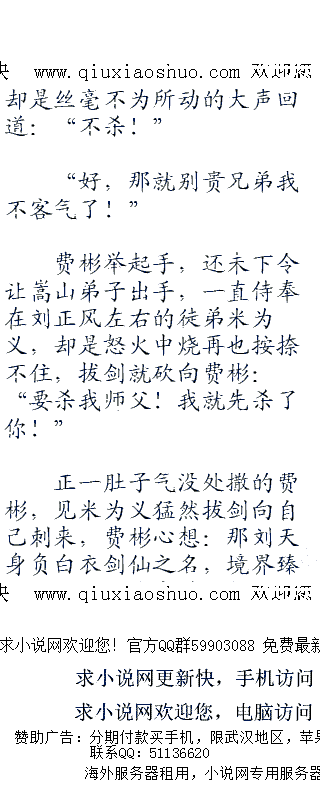 www.qiuxiaoshuo.com 欢迎您
却是丝毫不为所动的大声回
道：“不杀！”
“好，那就别贵兄弟我
不客气了！”
费彬举起手，还未下令
让嵩山弟子出手，一直侍奉
在刘正风左右的徒弟米为
义，却是怒火中烧再也按捺
不住，拔剑就砍向费彬：
“要杀我师父！我就先杀了
你！”
正一肚子气没处撒的费
彬，见米为义猛然拔剑向自
己刺来，费彬心想：那刘天
身负白衣剑仙之名，境界臻
www.qiuxiaoshuo.com 欢迎您
求小说网欢迎您！官方QQ群59903088 免费最新
求小说网更新快，手机访问
求小说网欢迎您，电脑访问
赞助广告：分期付款买手机，限武汉地区，苹果
联系QQ：51136620
海外服务器租用，小说网专用服务器